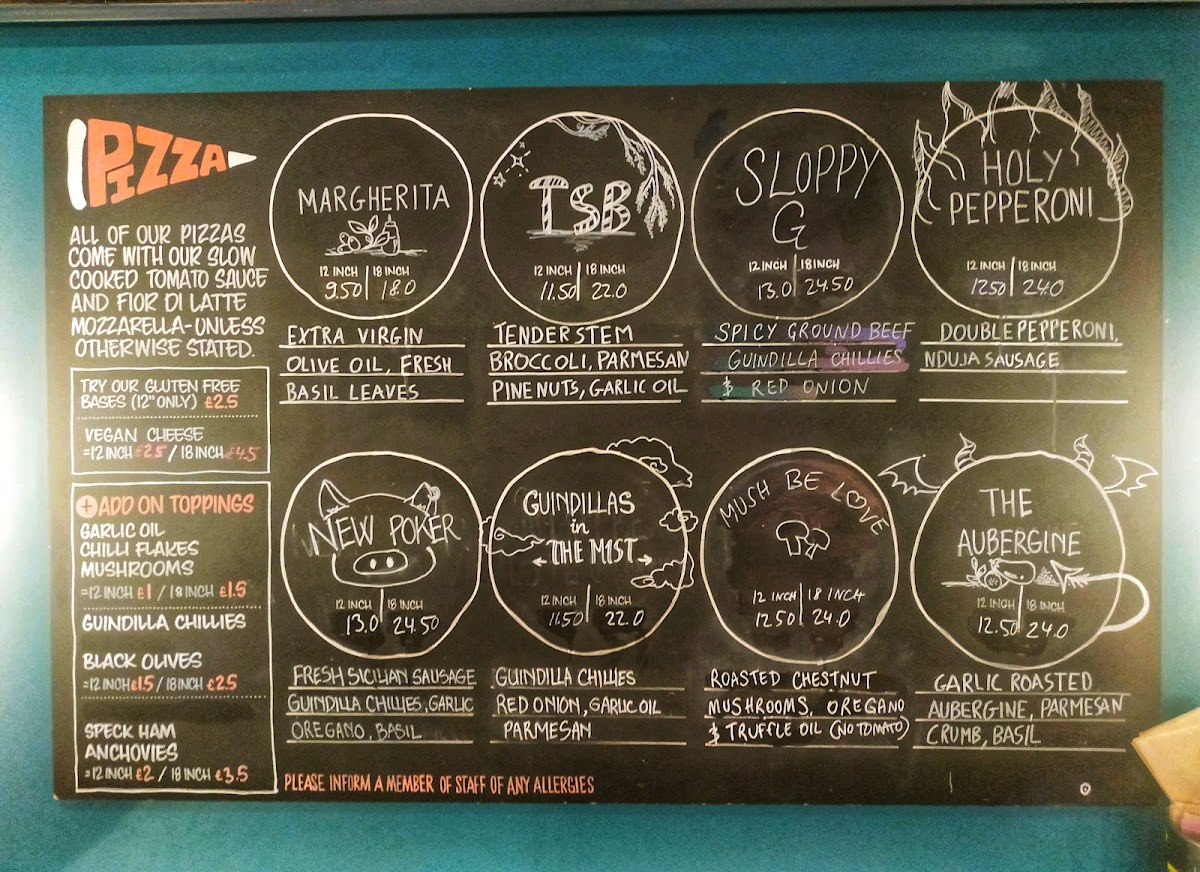 PIZZA
ALL OF OUR PIZZAS
COME WITH OUR SLOW
COOKED TOMATO SAUCE
AND FIOR DI LATTE
MOZZARELLA-UNLESS
OTHERWISE STATED.
TRY OUR GLUTEN FREE
BASES (12" ONLY) £2.5
VEGAN CHEESE
=12 INCH £2.5 / 18 INCH £4.5
+ ADD ON TOPPINGS
GARLIC OIL
CHILLI FLAKES
MUSHROOMS
=12 INCH £1 / 18 INCH £1.5
GUINDILLA CHILLIES
BLACK OLIVES
=12 INCH £1.5 / 18 INCH £2.5
SPECK HAM
ANCHOVIES
=12 INCH £2 / 18 INCH £3.5
MARGHERITA
12 INCH | 18 INCH
9.50 | 18.0
EXTRA VIRGIN
OLIVE OIL, FRESH
BASIL LEAVES
TSB
12 INCH | 18 INCH
11.50 | 22.0
TENDERSTEM
BROCCOLI, PARMESAN
PINE NUTS, GARLIC OIL
SLOPPY
G
12 INCH | 18 INCH
13.0 | 24.50
SPICY GROUND BEEF
GUINDILLA CHILLIES
& RED ONION
HOLY
PEPPERONI
12 INCH | 18 INCH
12.50 | 24.0
DOUBLE PEPPERONI,
NDUJA SAUSAGE
NEW PORKER
12 INCH | 18 INCH
13.0 | 24.50
FRESH SICILIAN SAUSAGE
GUINDILLA CHILLIES, GARLIC
OREGANO, BASIL
GUINDILLAS
in
THE MIST
12 INCH | 18 INCH
11.50 | 22.0
GUINDILLA CHILLIES
RED ONION, GARLIC OIL
PARMESAN
MUSH BE LOVE
12 INCH | 18 INCH
12.50 | 24.0
ROASTED CHESTNUT
MUSHROOMS, OREGANO
& TRUFFLE OIL (NO TOMATO)
THE
AUBERGINE
12 INCH | 18 INCH
12.50 | 24.0
GARLIC ROASTED
AUBERGINE, PARMESAN
CRUMB, BASIL
PLEASE INFORM A MEMBER OF STAFF OF ANY ALLERGIES